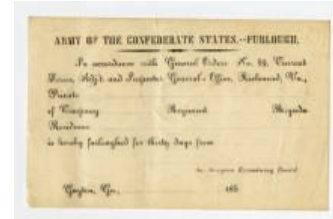 ARMY OF THE CONFEDERATE STATES.--FURLOUGH.
In accordance with General Orders No. 69, Current
Series, Adj't and Inspector General's Office, Richmond, Va.,
Private
of Company Regiment Brigade
Residence
is hereby furloughed for thirty days from
Examining Board
Ga., 186